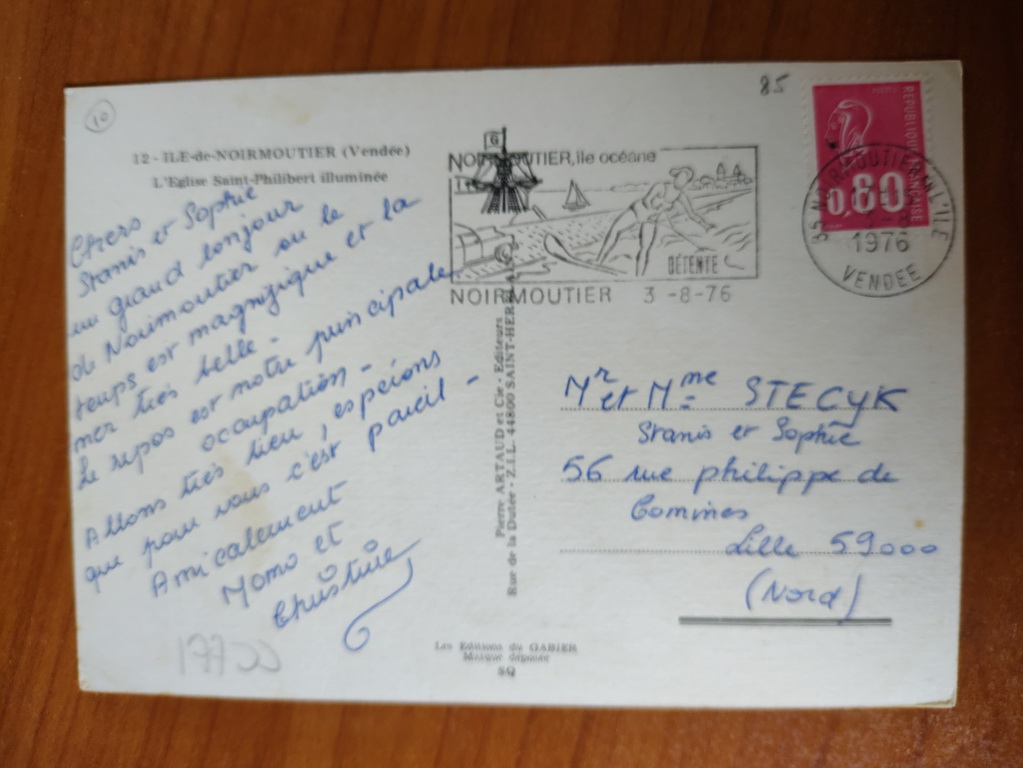 10
12 - ILE-de-NOIRMOUTIER (Vendée)
L'Eglise Saint-Philibert illuminée
Chers
Stanis et Sophie
un grand bonjour
de Noirmoutier ou le
temps est magnifique et la
mer très belle -
Le repos est notre principale
occupation -
Allons très bien, espérons
que pour vous c'est pareil -
Amicalement
Momo et
Christine
85
G
NOIRMOUTIER, île océane
DÉTENTE
NOIRMOUTIER 3 -8-76
REPUBLIQUE FRANÇAISE
0,80
NOIRMOUTIER EN L'ILE
1976
VENDEE
Pierre ARTAUD et Cie - Editeurs
Rue de la Dutée - Z.I.L. 44800 SAINT-HERBLAIN
Mr et Mme STECYK
Stanis et Sophie
56 rue philippe de
Comines
Lille 59000
(Nord)
Les Editions du GABIER
Marque déposée
SQ